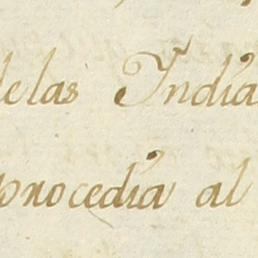 delas India
onocedia al